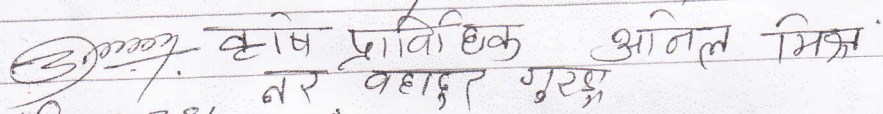 कृषि प्राविधिक अनिल मिश्र
नर वहादुर गुरुङ्ग